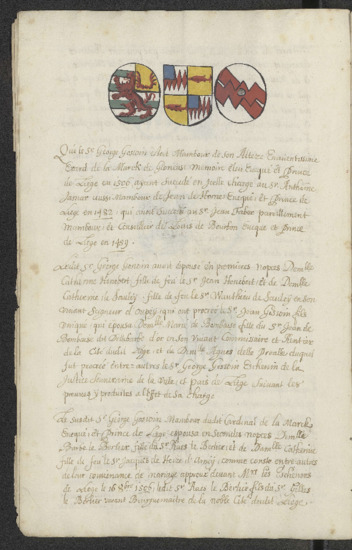 Que le Sr George Gossoin estoit Mambour de son Altèze Eminentissime
Erard de la Marck de Glorieuse memoire Eveque et Prince
de Liege en 1506 ayant succedé en icelle charge au Sr Anthoine
Jamar aussi Mambour de Jean de Horne Evèque et Prince de
Liege en 1492 qui avoit succedé au Sr Jean Fabri pareillement
Mambour et Conseiller de Louis de Bourbon Eveque et Prince
de Liege en 1489.
Ledit Sr George Gossoin avoit épousé en premieres nopces Damlle
Catherine Honobet fille de feu le Sr Jean Honobet et de Damlle
Catherine fille de feu le Sr Wautheu de en son
vivant Seigneur d'Oupey qui ont procreé le Sr Jean Gossoin fils
unique qui épousa Damlle Marie de Bombaye fille du Sr Jean de
Bombaye dit d'or en son vivant Commissaire et Rentier
de la Cité dudit Liege et de Damlle Agnes delle duquel
fut procreé entre autres le Sr George Gossoin Eschevin de la
Justice Souveraine de la Ville, et Pais de Liege suivant les
preuves y produites a l'effet de sa charge
Le susdit Sr George Gossoin Mambour dudit Cardinal de la Marck
Eveque et Prince de Liege espousa en secondes nopces Damlle
Barbe le Berlier fille du Sr Rase le Berlier et de Damlle Catharine
fille de feu le Sr Jacques de comme conste entre autres
de leur convenance de mariage apporté devant Mrs les Eschevins
de Liege le 16 1506, ledit Sr Rase le Berlier fils du Sr Gilles
le Berlier vivant Bourguemaitre de la noble Cité dudit Liege